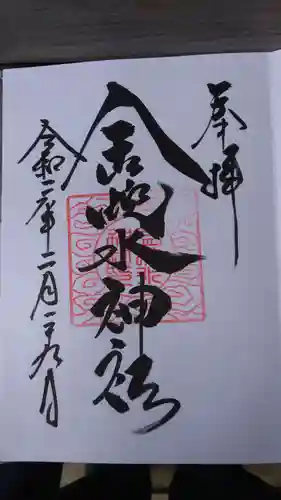 奉拝
金蛇水神社
令和二年二月二十九日